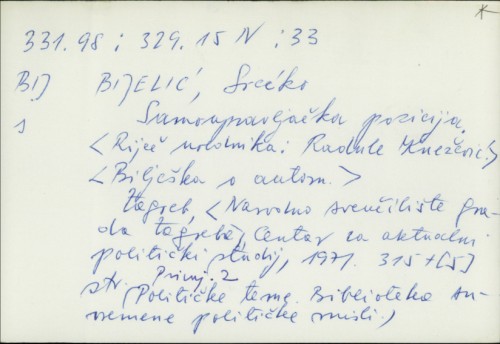 331.98 : 329.15 N : 33
BIJ BIJELIĆ, Srećko
1 Samoupravljačka pozicija.
<Riječ urednika: Radule Knežević.>
<Bilješka o autoru.>
Zagreb, <Narodno sveučilište gra-
da Zagreba> Centar za aktualni
politički studij, 1971. 315+[5]
str. Primj. 2
(Političke teme. Biblioteka su-
vremene političke misli.)